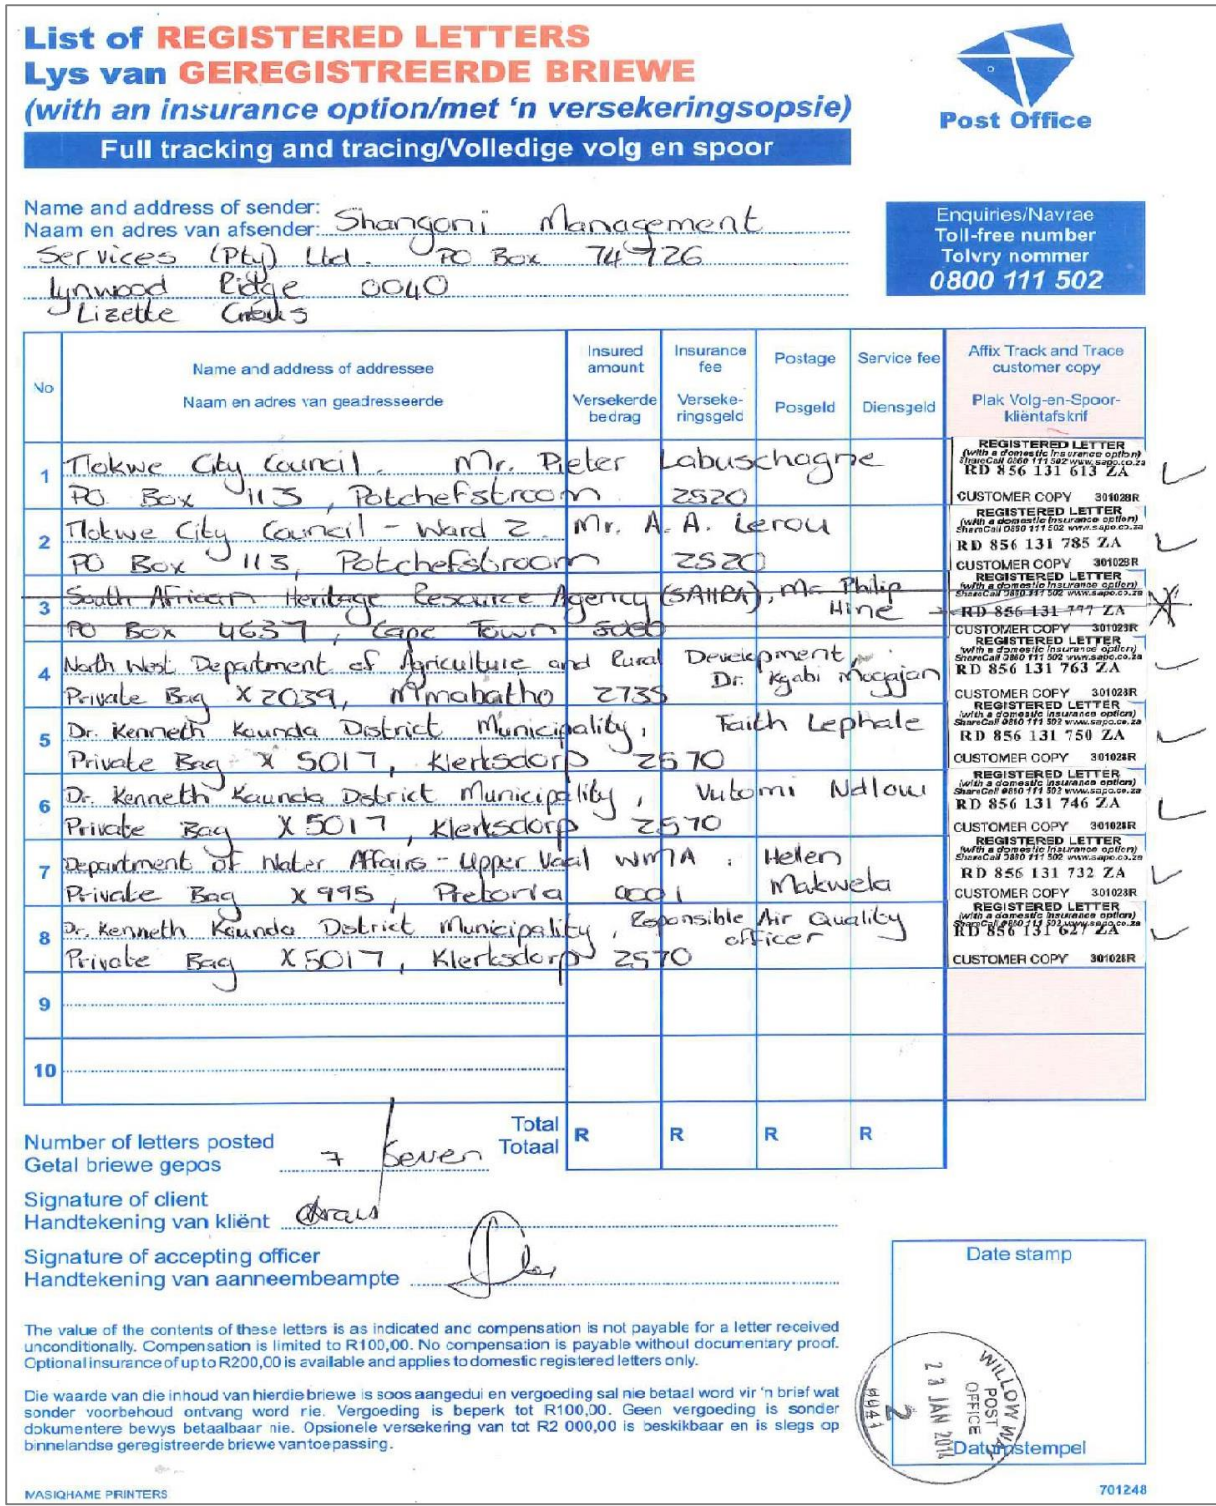 List of REGISTERED LETTERS
Lys van GEREGISTREERDE BRIEWE
(with an insurance option/met 'n versekeringsopsie)
Full tracking and tracing/Volledige volg en spoor
Post Office
Name and address of sender:
Naam en adres van afsender: Shangoni Management
Services (Pty) Ltd. PO Box 74726
Lynwood Ridge 0040
Lizette
Enquiries/Navrae
Toll-free number
Tolvry nommer
0800 111 502
No
Name and address of addressee
Naam en adres van geadresseerde
Insured amount
Versekerde bedrag
Insurance fee
Verseke-ringsgeld
Postage
Posgeld
Service fee
Diensgeld
Affix Track and Trace customer copy
Plak Volg-en-Spoor-kliëntafskrif
1 Tlokwe City Council. Mr. Pieter Labuschagne
PO Box 113, Potchefstroom 2520
REGISTERED LETTER
(with a domestic insurance option)
ShareCall 0860 111 502 www.sapo.co.za
RD 856 131 613 ZA
CUSTOMER COPY 301028R
2 Tlokwe City Council - Ward 2. Mr. A. A. Lerou
PO Box 113, Potchefstroom 2520
REGISTERED LETTER
(with a domestic insurance option)
ShareCall 0860 111 502 www.sapo.co.za
RD 856 131 785 ZA
CUSTOMER COPY 301028R
3 South African Heritage Resource Agency (SAHRA), Mr Philip
Hine
PO Box 4637, Cape Town
REGISTERED LETTER
(with a domestic insurance option)
ShareCall 0860 111 502 www.sapo.co.za
RD 856 131 777 ZA
CUSTOMER COPY 301028R
4 North West Department of Agriculture and Rural Development,
Dr. Kgabi Mogajan
Private Bag X2039, Mmabatho 2735
REGISTERED LETTER
(with a domestic insurance option)
ShareCall 0860 111 502 www.sapo.co.za
RD 856 131 763 ZA
CUSTOMER COPY 301028R
5 Dr. Kenneth Kaunda District Municipality, Faith Lephale
Private Bag X 5017, Klerksdorp 2570
REGISTERED LETTER
(with a domestic insurance option)
ShareCall 0860 111 502 www.sapo.co.za
RD 856 131 750 ZA
CUSTOMER COPY 301028R
6 Dr. Kenneth Kaunda District Municipality, Vutomi Ndlovu
Private Bag X5017, Klerksdorp 2570
REGISTERED LETTER
(with a domestic insurance option)
ShareCall 0860 111 502 www.sapo.co.za
RD 856 131 746 ZA
CUSTOMER COPY 301028R
7 Department of Water Affairs - Upper Vaal WMA, Helen
Makwela
Private Bag X995, Pretoria 0001
REGISTERED LETTER
(with a domestic insurance option)
ShareCall 0860 111 502 www.sapo.co.za
RD 856 131 732 ZA
CUSTOMER COPY 301028R
8 Dr. Kenneth Kaunda District Municipality, Responsible Air Quality
officer
Private Bag X5017, Klerksdorp 2570
REGISTERED LETTER
(with a domestic insurance option)
ShareCall 0860 111 502 www.sapo.co.za
RD 856 131 627 ZA
CUSTOMER COPY 301028R
9
10
Number of letters posted
Getal briewe gepos 7 Seven
Total
Totaal
R R R R
Signature of client
Handtekening van kliënt
Signature of accepting officer
Handtekening van aanneembeampte
Date stamp
Datumstempel
WILLOW WAY
POST OFFICE
JAN 2014
2
The value of the contents of these letters is as indicated and compensation is not payable for a letter received
unconditionally. Compensation is limited to R100,00. No compensation is payable without documentary proof.
Optional insurance of up to R200,00 is available and applies to domestic registered letters only.
Die waarde van die inhoud van hierdie briewe is soos aangedui en vergoeding sal nie betaal word vir 'n brief wat
sonder voorbehoud ontvang word nie. Vergoeding is beperk tot R100,00. Geen vergoeding is sonder
dokumentere bewys betaalbaar nie. Opsionele versekering van tot R2 000,00 is beskikbaar en is slegs op
binnelandse geregistreerde briewe van toepassing.
MASIQHAME PRINTERS
701248